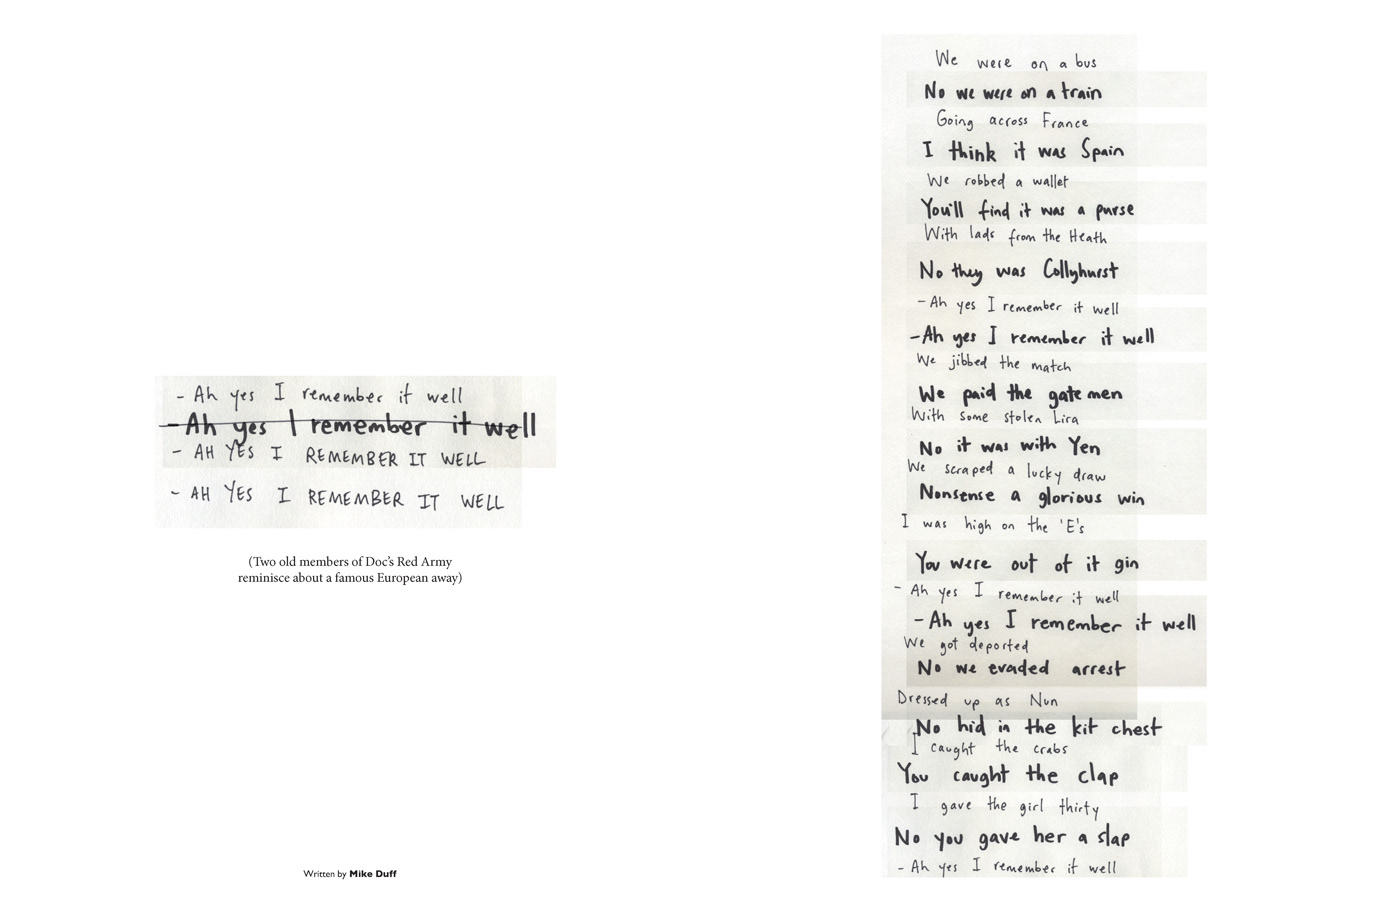 - Ah yes I remember it well
- Ah yes I remember it well
- AH YES I REMEMBER IT WELL
- AH YES I REMEMBER IT WELL
(Two old members of Doc's Red Army
reminisce about a famous European away)
Written by Mike Duff
We were on a bus
No we were on a train
Going across France
I think it was Spain
We robbed a wallet
You'll find it was a purse
With lads from the Heath
No they was Collyhurst
- Ah yes I remember it well
- Ah yes I remember it well
We jibbed the match
We paid the gate men
With some stolen Lira
No it was with Yen
We scraped a lucky draw
Nonsense a glorious win
I was high on the 'E's
You were out of it gin
- Ah yes I remember it well
- Ah yes I remember it well
We got deported
No we evaded arrest
Dressed up as Nun
No hid in the kit chest
I caught the crabs
You caught the clap
I gave the girl thirty
No you gave her a slap
- Ah yes I remember it well